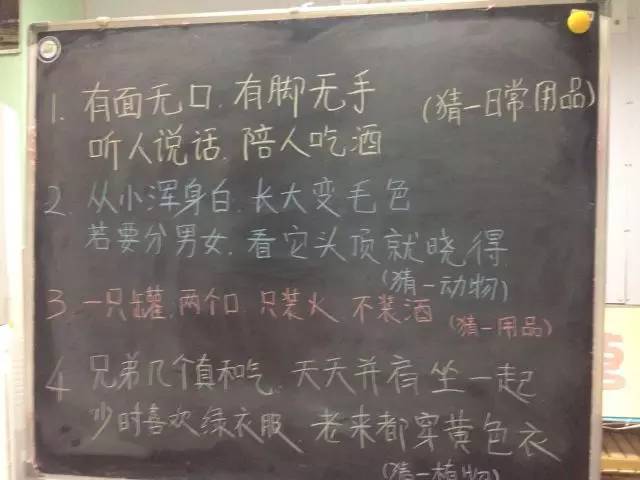 1. 有面无口. 有脚无手 (猜一日常用品)
听人说话. 陪人吃酒
2. 从小浑身白. 长大变毛色
若要分男女. 看它头顶就晓得
(猜一动物)
3. 一只罐. 两个口. 只装火 不装酒 (猜一用品)
4 兄弟几个真和气. 天天并肩坐一起
少时喜欢绿衣服. 老来都穿黄色衣
(猜一植物)